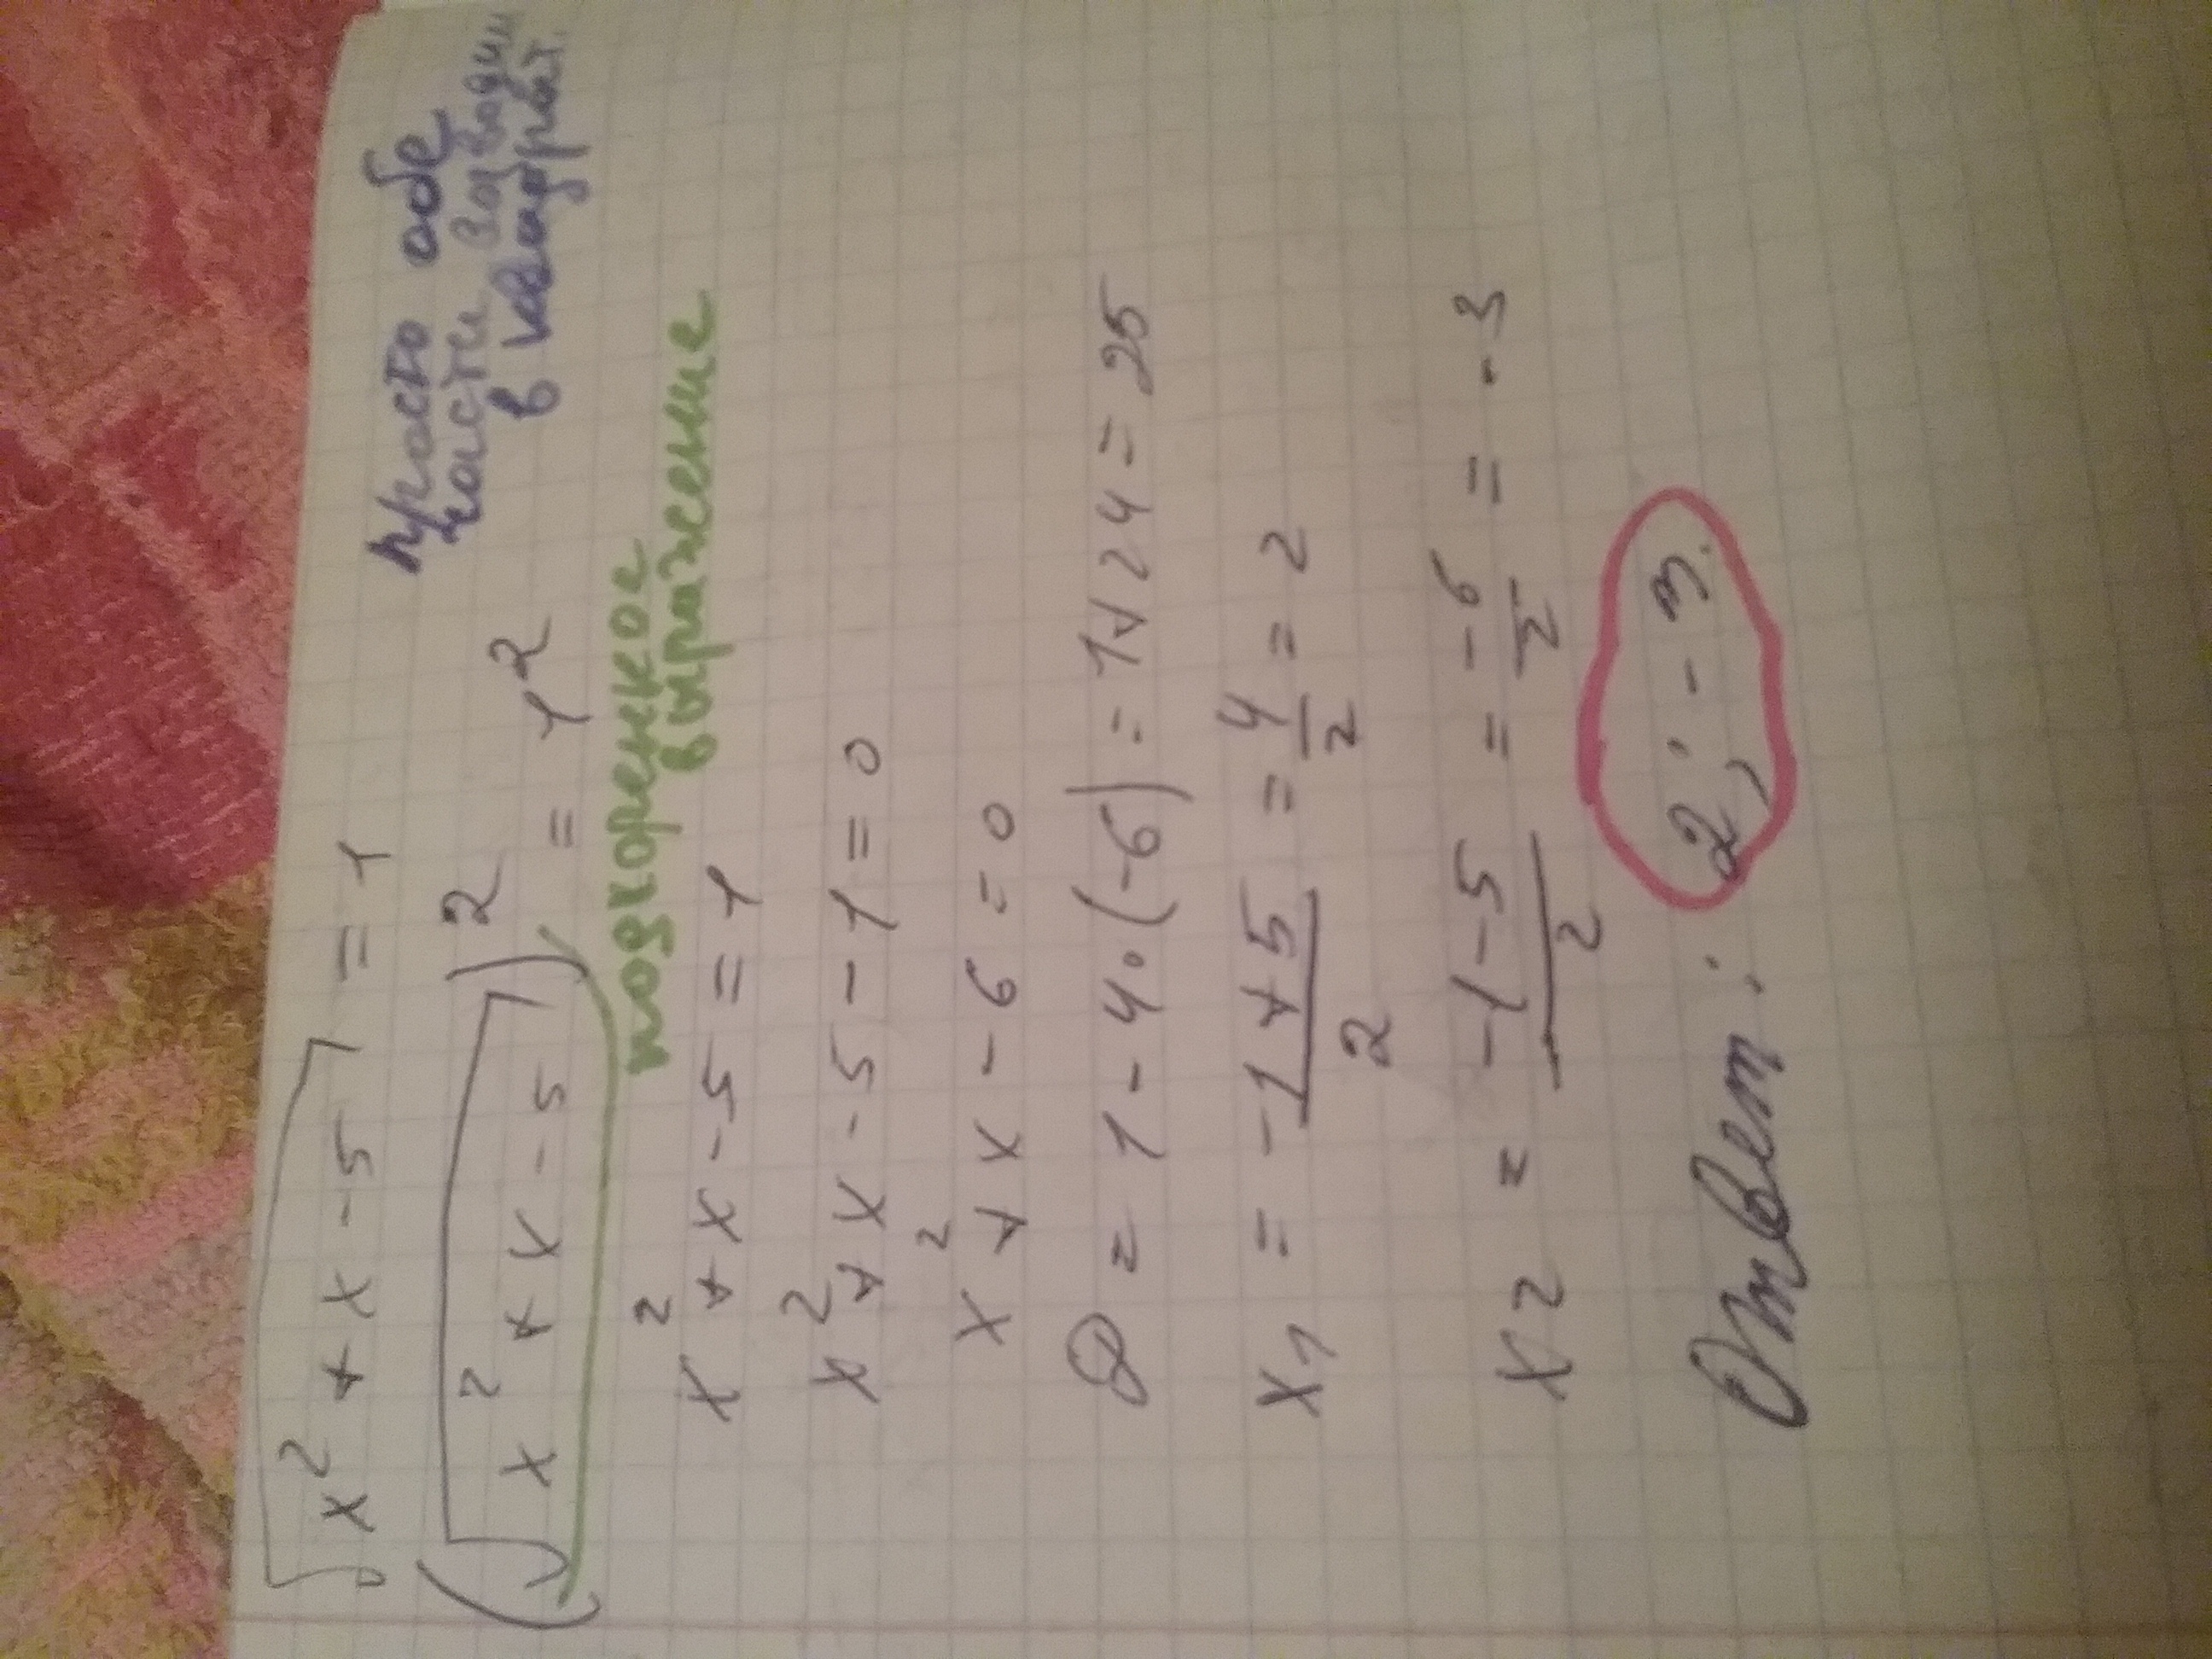 √x² + x - 5 = 1
просто обе
части возводим
в квадрат.
(√x² + x - 5)² = 1²
подкоренное
выражение
x² + x - 5 = 1
x² + x - 5 - 1 = 0
x² + x - 6 = 0
D = 1 - 4·(-6) = 1 + 24 = 25
x1 = -1 + 5 / 2 = 4/2 = 2
x2 = -1 - 5 / 2 = -6/2 = -3
Ответ: 2; -3.